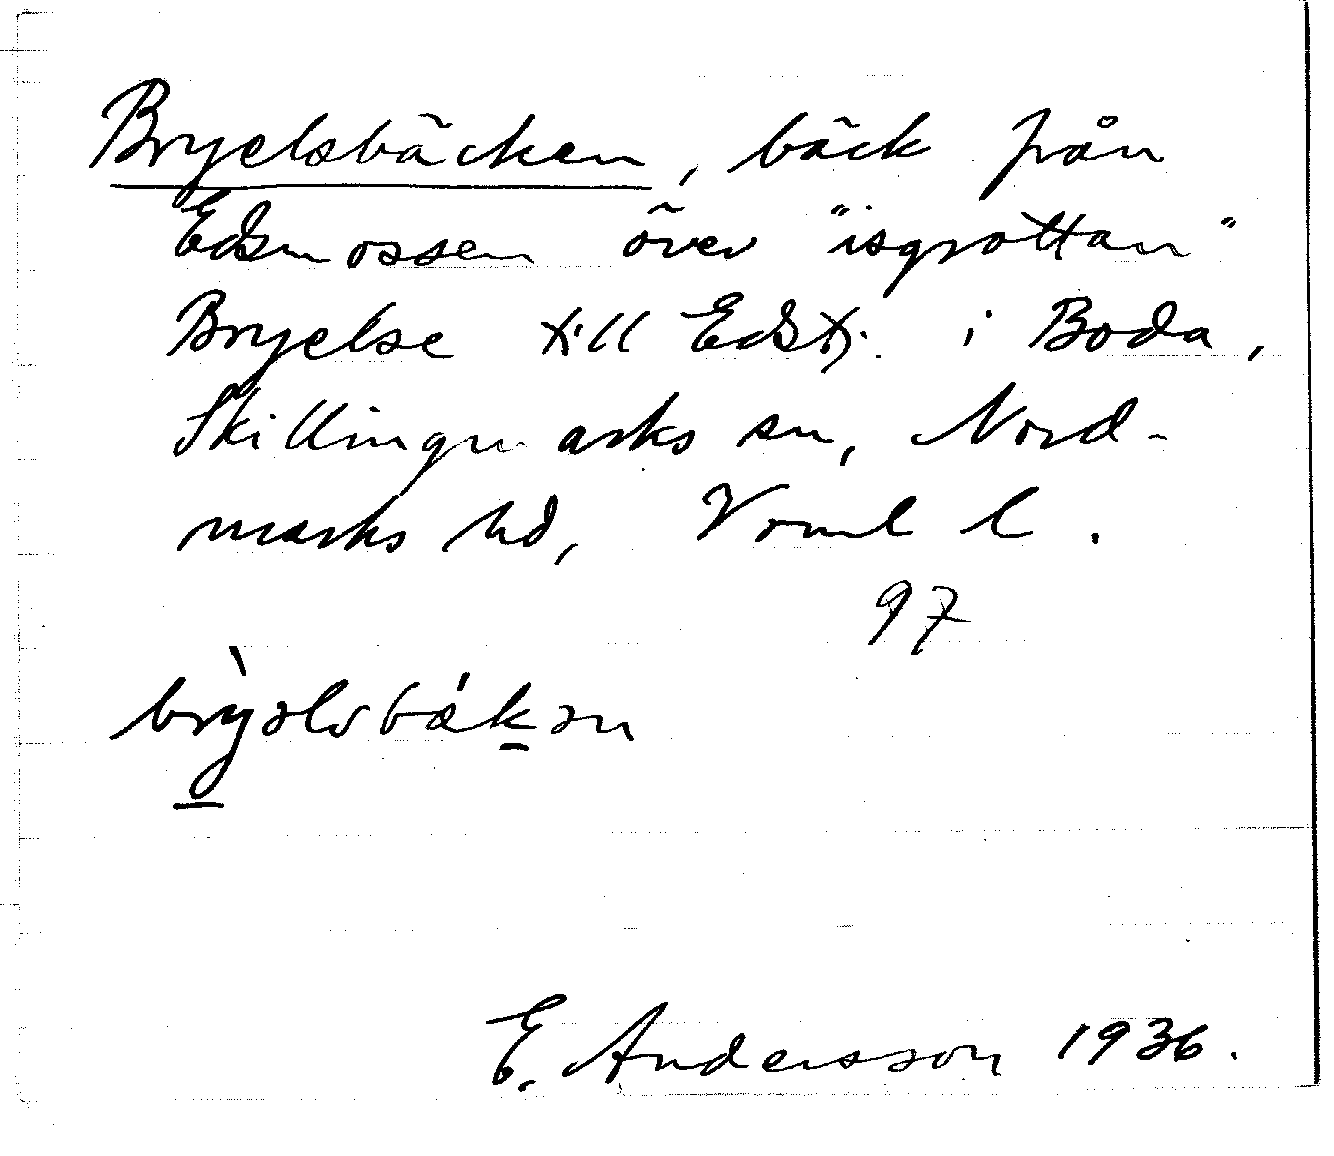 Bryelsbäcken, bäck från
Edsmossen över "isgrottan"
Bryelse till Edstj. i Boda,
Skillingmarks sn, Nord-
marks hd, Vrml l.
97
E. Andersson 1936.